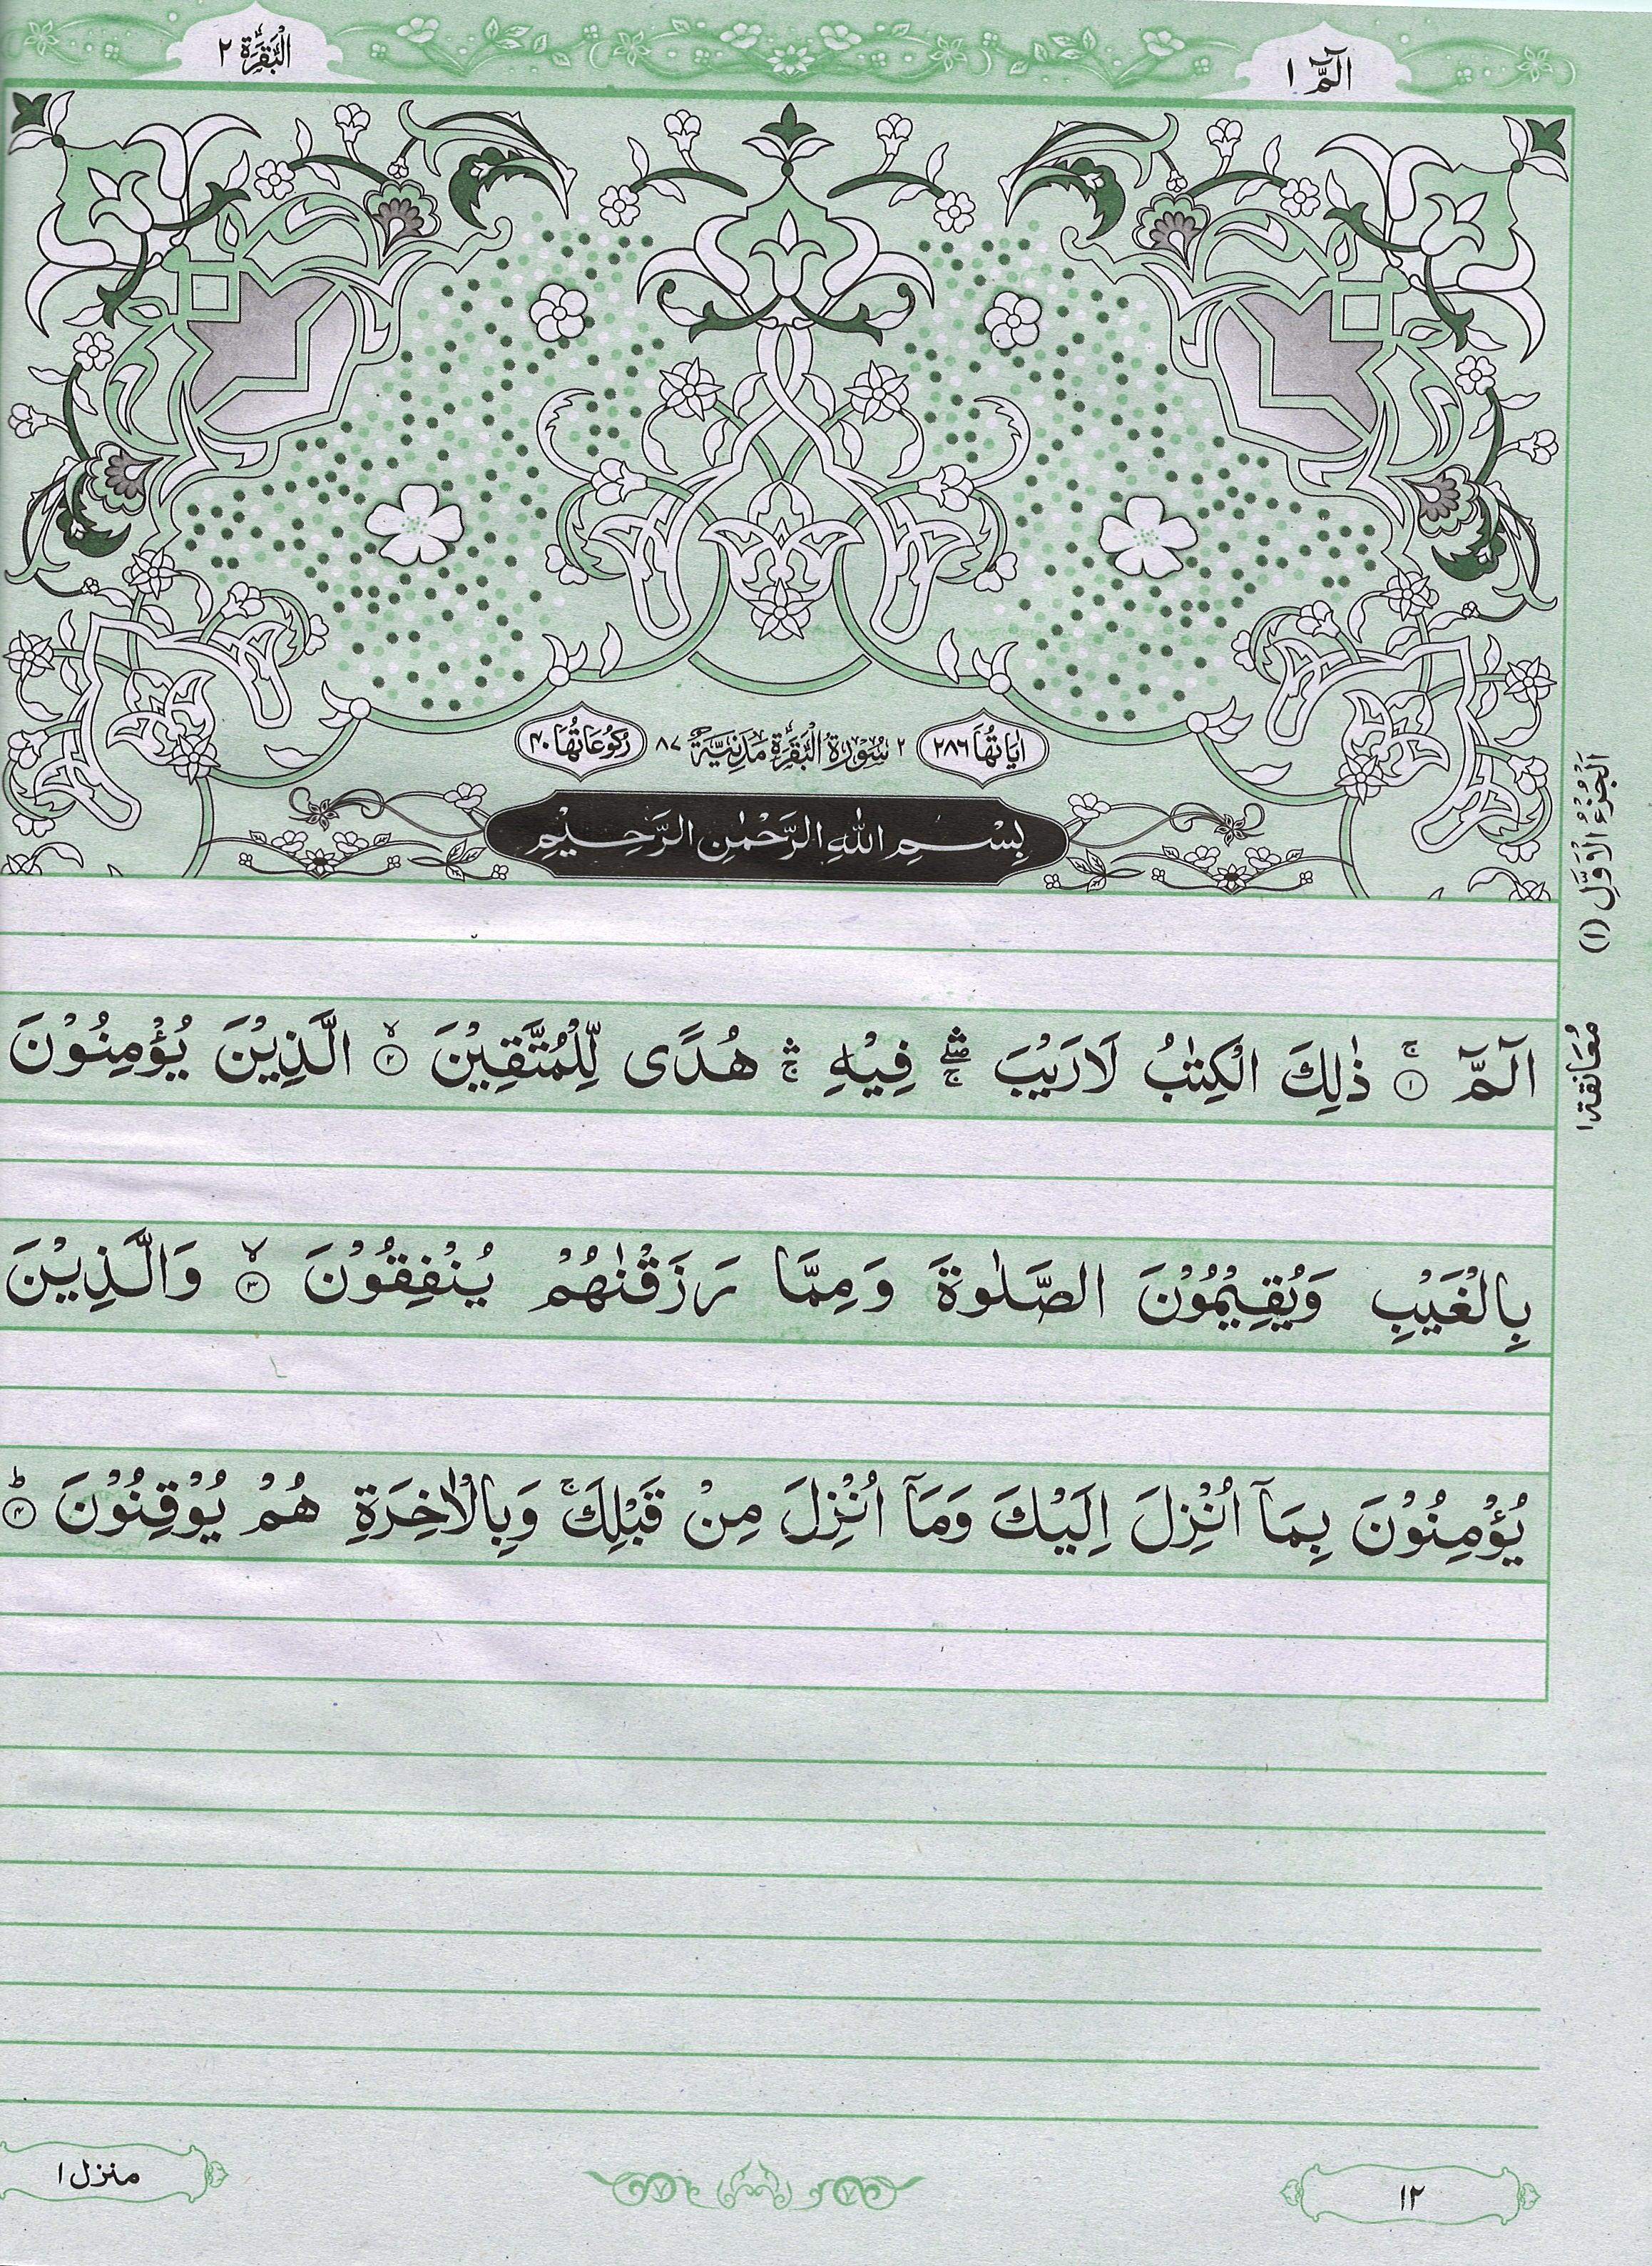 الٓمّٓ ١
الْبَقَرَة ٢
اٰيَاتُهَا ٢٨٦
٢ سُوْرَةُ الْبَقَرَةِ مَدَنِيَّةٌ ٨٧
رُكُوْعَاتُهَا ٤٠
بِسْمِ اللّٰهِ الرَّحْمٰنِ الرَّحِيْمِ
اَلْجُزْءُ الْاَوَّلُ (١)
مُعَانقة ١
الٓمّٓ ۚ﴿١﴾ ذٰلِكَ الْكِتٰبُ لَارَيْبَ ۛۖۚ فِيْهِ ۛۚ هُدًى لِّلْمُتَّقِيْنَ ۙ﴿٢﴾ الَّذِيْنَ يُؤْمِنُوْنَ
بِالْغَيْبِ وَيُقِيْمُوْنَ الصَّلٰوةَ وَمِمَّا رَزَقْنٰهُمْ يُنْفِقُوْنَ ۙ﴿٣﴾ وَالَّذِيْنَ
يُؤْمِنُوْنَ بِمَآ اُنْزِلَ اِلَيْكَ وَمَآ اُنْزِلَ مِنْ قَبْلِكَ ۚ وَبِالْاٰخِرَةِ هُمْ يُوْقِنُوْنَ ؕ﴿٤﴾
١٢
منزل ١